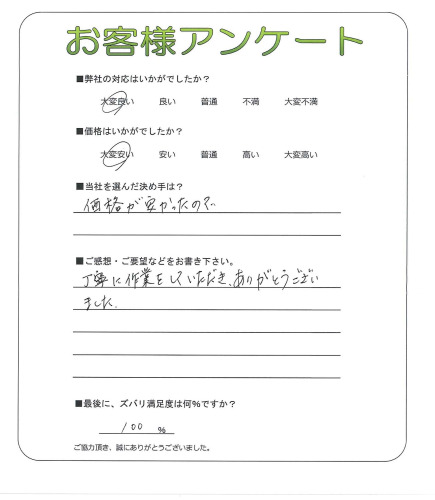 お客様アンケート
■弊社の対応はいかがでしたか？
大変良い 良い 普通 不満 大変不満
■価格はいかがでしたか？
大変安い 安い 普通 高い 大変高い
■当社を選んだ決め手は？
価格が安かったので
■ご感想・ご要望などをお書き下さい。
丁寧に作業をしていただき、ありがとうござい
ました。
■最後に、ズバリ満足度は何％ですか？
100 %
ご協力頂き、誠にありがとうございました。